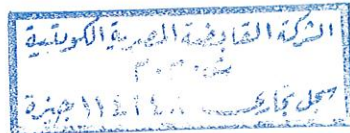 الشركة القابضة المصرية الكويتية
ش.م.م
سجل تجارى ١١٤١٤٨ جيزة